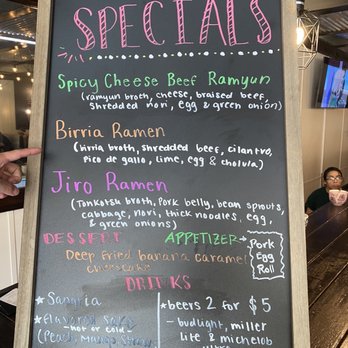 SPECIALS
Spicy Cheese Beef Ramyun
(ramyun broth, cheese, braised beef,
shredded nori, egg & green onion)
Birria Ramen
(birria broth, shredded beef, cilantro,
pico de gallo, lime, egg & cholula)
Jiro Ramen
(Tonkotsu broth, Pork belly, bean sprouts,
cabbage, nori, thick noodles, egg,
& green onions)
DESSERT
Deep fried banana caramel
cheesecake
APPETIZER→
Pork
Egg
Roll
DRINKS
★ Sangria
★ flavored
-hot or cold-
(Peach, Mango,
★beers 2 for $5
- budlight, miller
lite & michelob